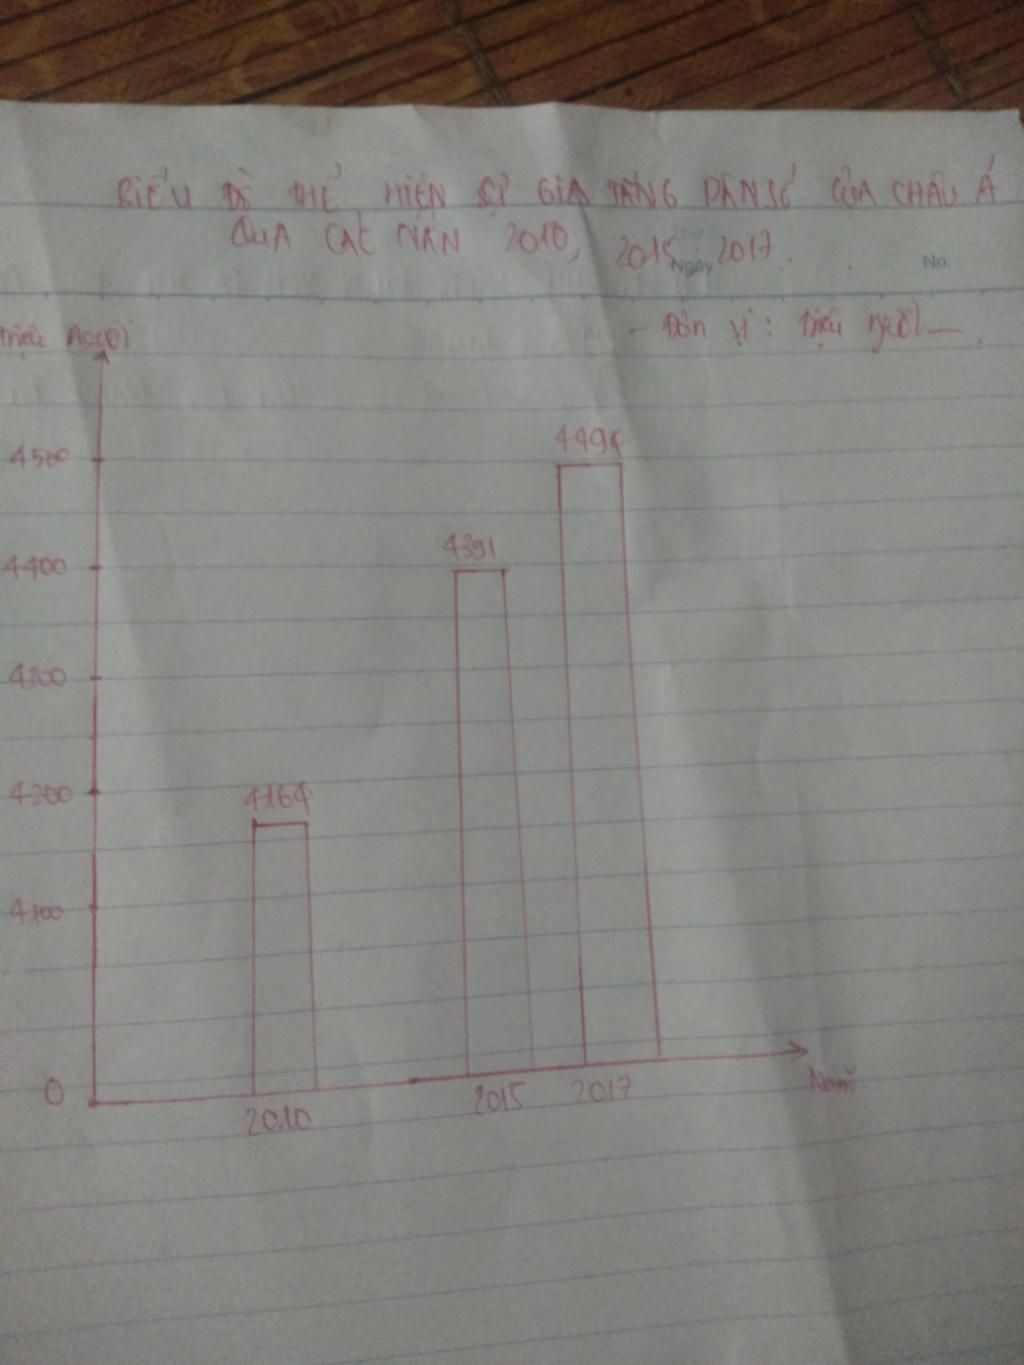 BIỂU ĐỒ THỂ HIỆN SỰ GIA TĂNG DÂN SỐ CỦA CHÂU Á
QUA CÁC NĂM 2010, 2015, 2017.
Ngày
No.
Triệu người
- Đơn vị: triệu người -
4500
4496
4400
4391
4300
4200
4164
4100
0
2010
2015
2017
Năm